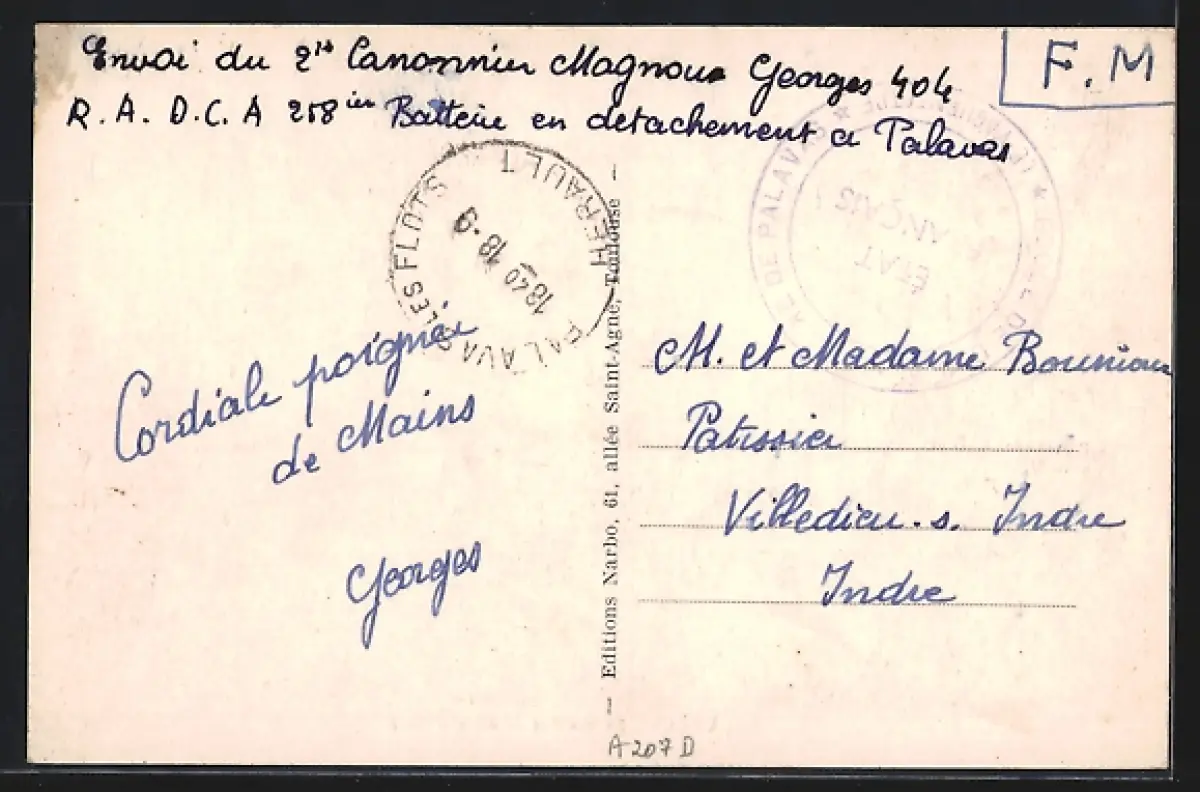 Envoi du 2e Canonnier Magnoux Georges 404
R. A. D.C.A 258ième Batterie en detachement a Palavas
F.M
PALAVAS LES FLOTS
18-9
1940
HERAULT
DE PALAVAS
ÉTAT
ANÇAIS
Cordiale poignée
de Mains
Georges
M. et Madame
Patissier
Villedieu.s. Indre
Indre
— Editions Narbo, 61, allée Saint-Agne, Toulouse —
A207D